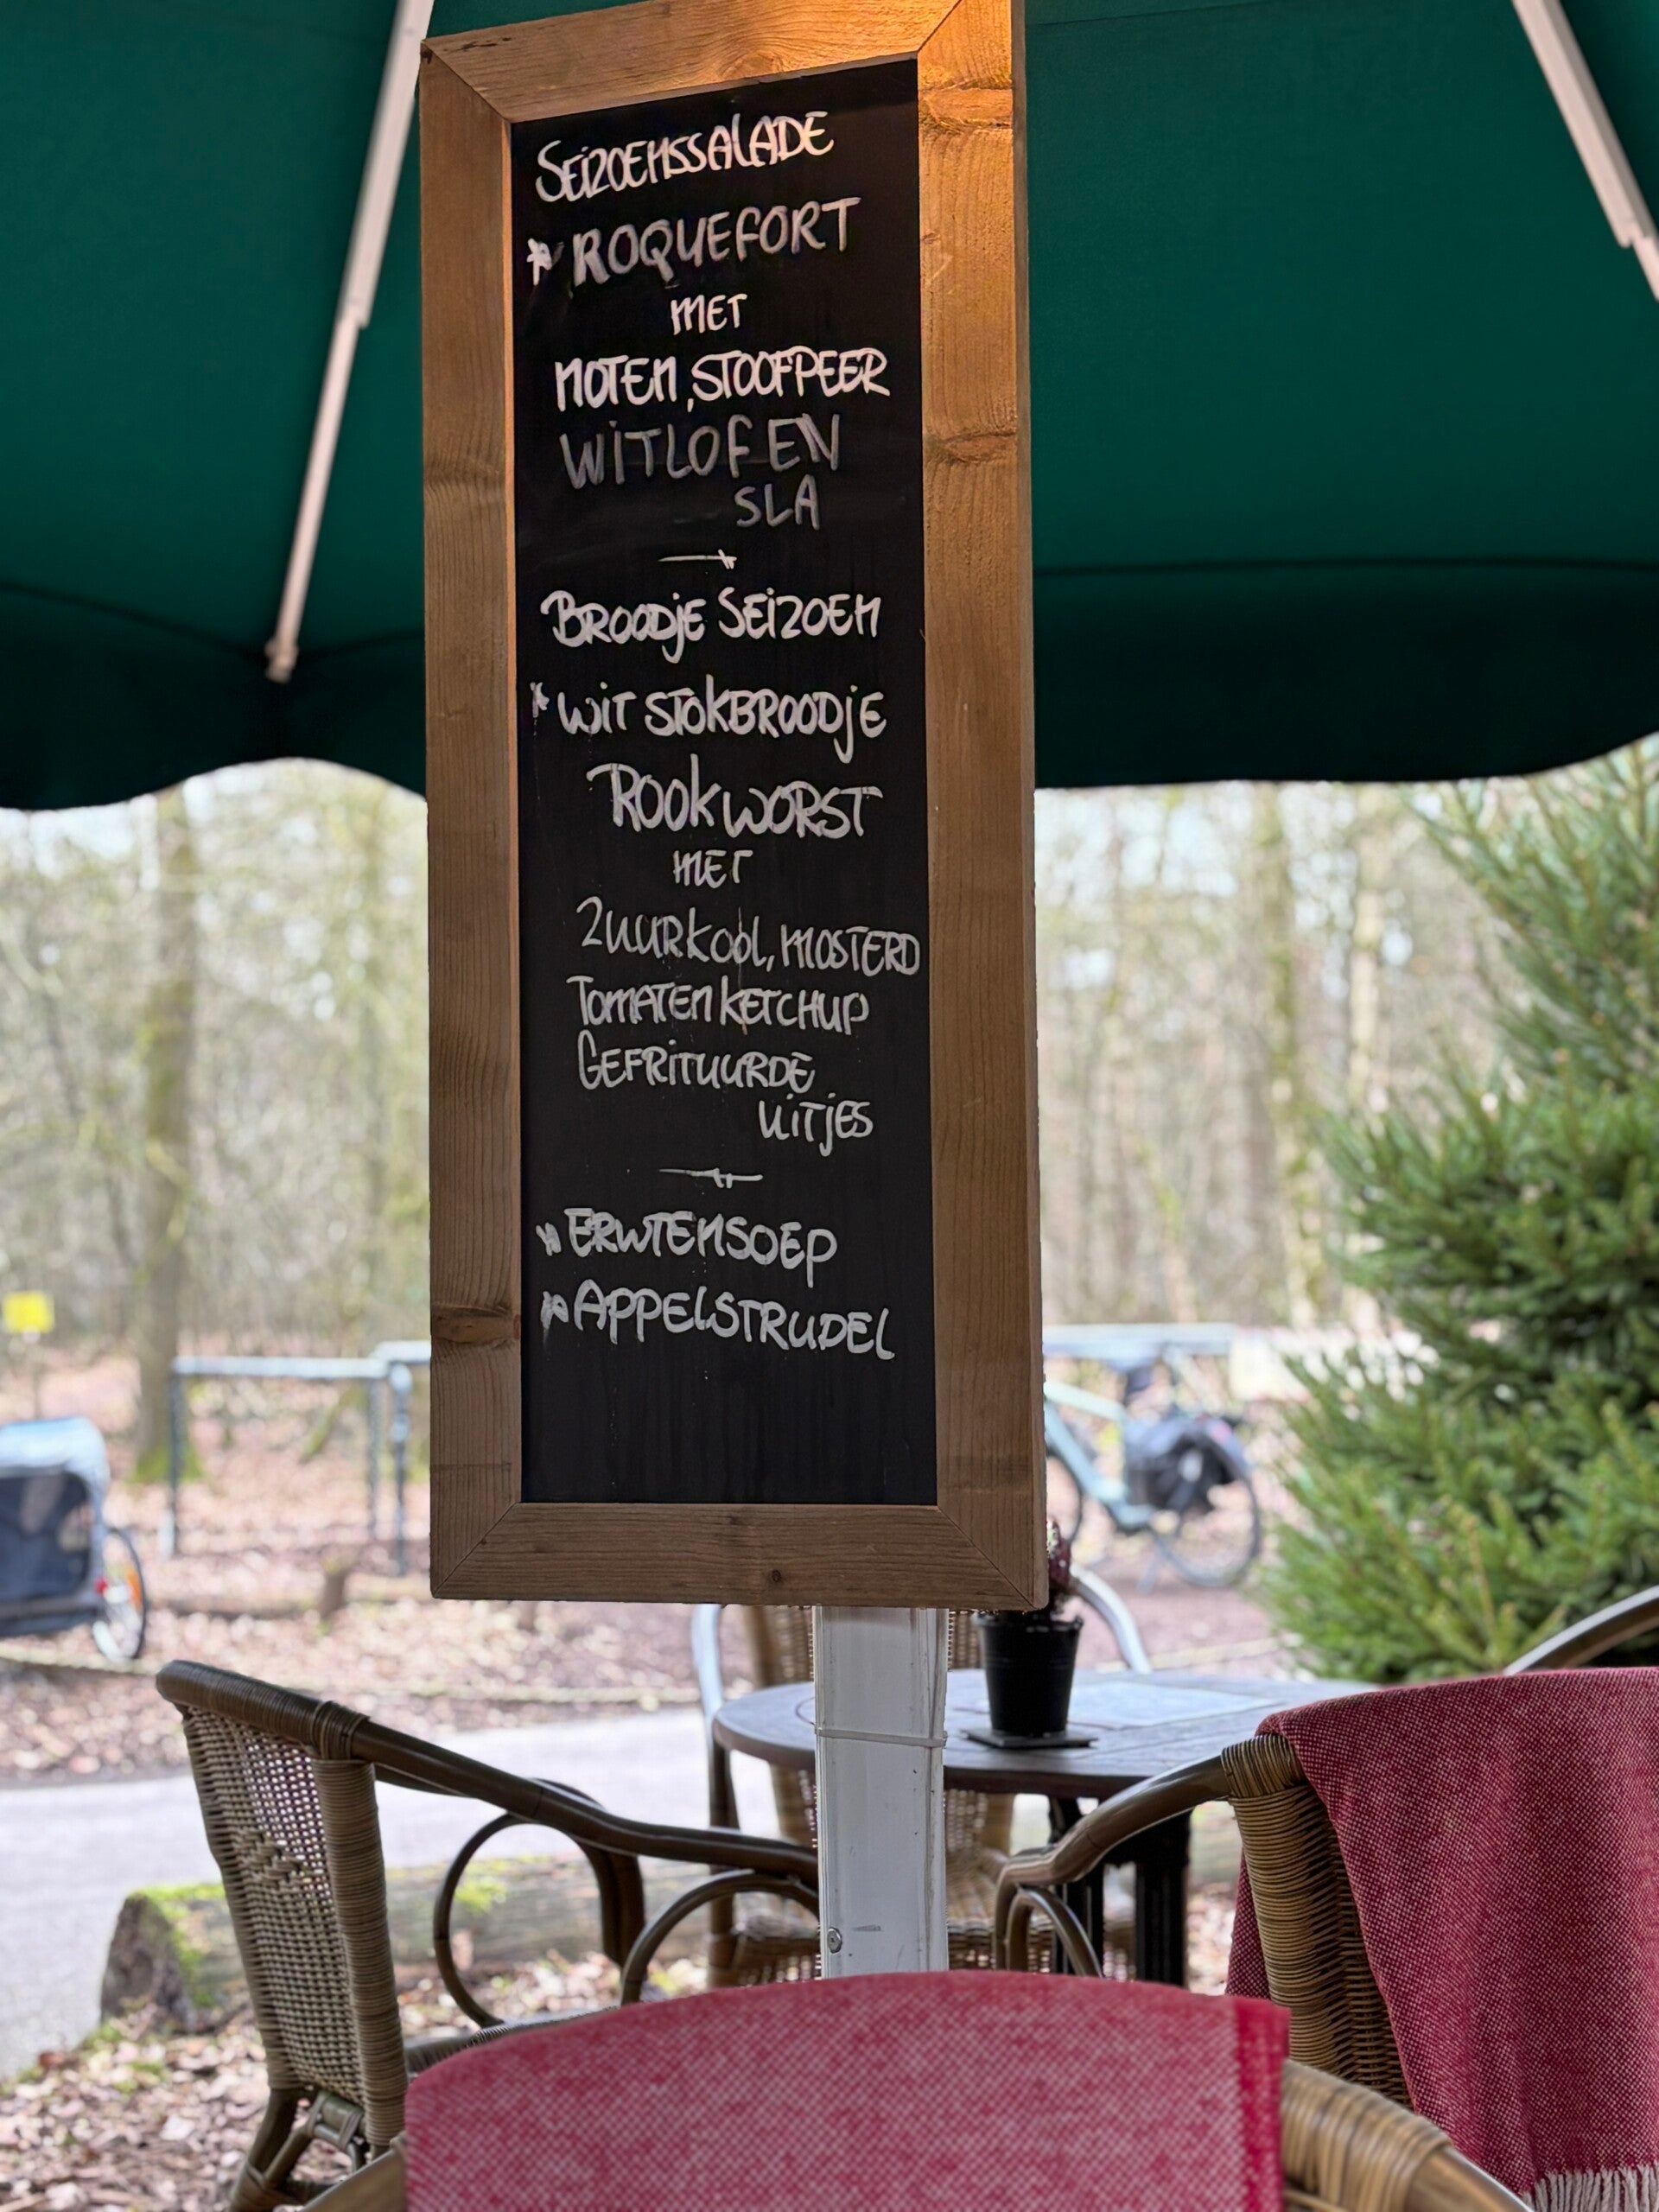 SEIZOENSSALADE
* ROQUEFORT
MET
NOTEN, STOOFPEER
WITLOF EN
SLA
BROODJE SEIZOEN
* WIT STOKBROODJE
ROOKWORST
MET
ZUURKOOL, MOSTERD
TOMATENKETCHUP
GEFRITUURDE
UITJES
* ERWTENSOEP
* APPELSTRUDEL